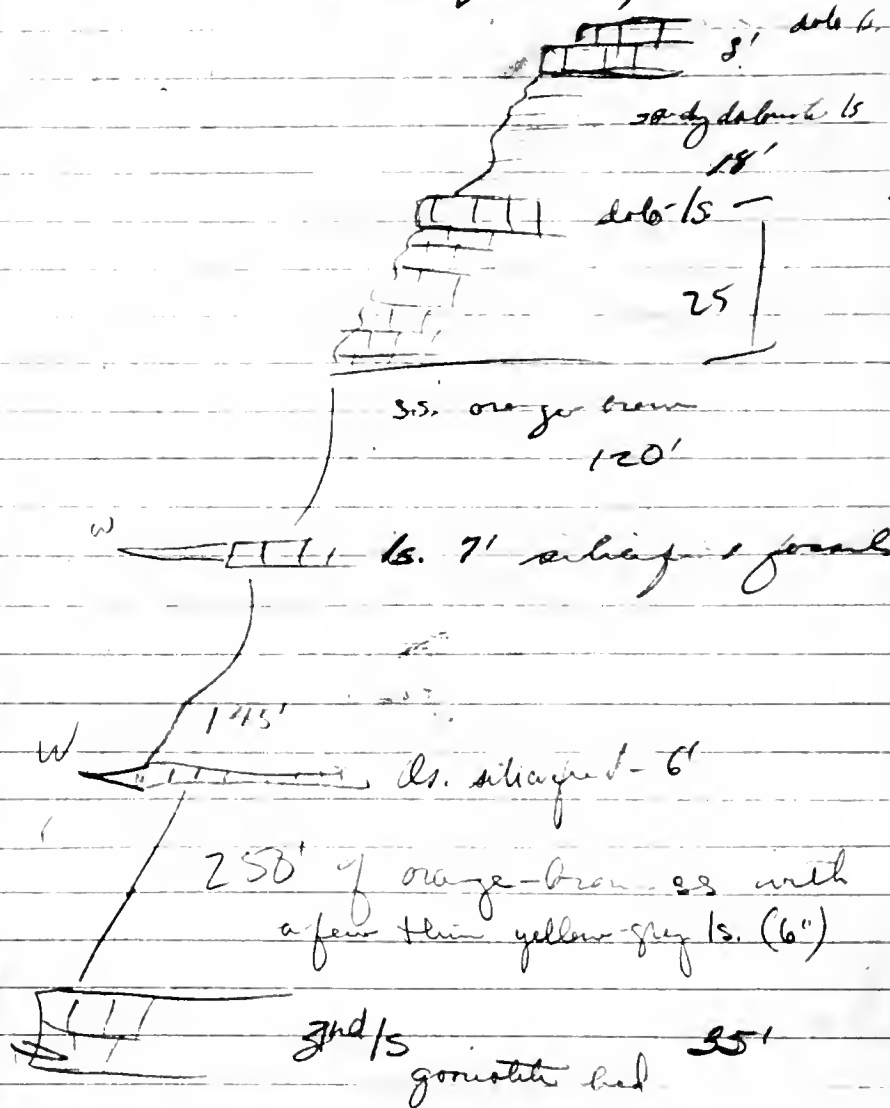 8' dolo ls.
sandy dolomite ls
18'
dolo-ls
25
s.s. orange brown
120'
W
ls. 7' silicified fossils
145'
W
ls. silicified - 6'
250' of orange-brown ss with
a few thin yellow-grey ls. (6")
2nd ls 35'
goniatite bed